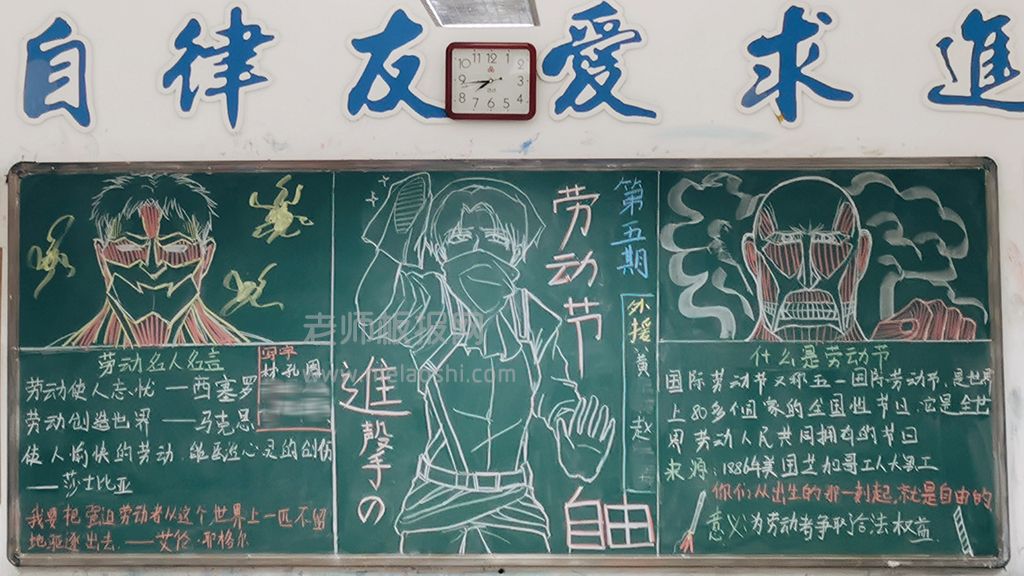 自律友爱求進
12
11
10
9
8
7
6
5
4
3
2
1
劳动名人名言
劳动使人忘忧 — 西塞罗
劳动创造世界 — 马克思
使人愉快的劳动,能医治心灵的创伤
— 莎士比亚
我要把强迫劳动者从这个世界上一匹不留
地驱逐出去. — 艾伦·耶格尔
写字
林 孔 周
進撃の
自由
劳动节
第五期
外援:黄
赵
老师板报网
www.belaoshi.com
什么是劳动节
国际劳动节又称五一国际劳动节,是世界
上80多个国家的全国性节日.它是全世
界劳动人民共同拥有的节日
来源:1886年美国芝加哥工人大罢工
你们从出生的那一刻起,就是自由的
意义:为劳动者争取合法权益